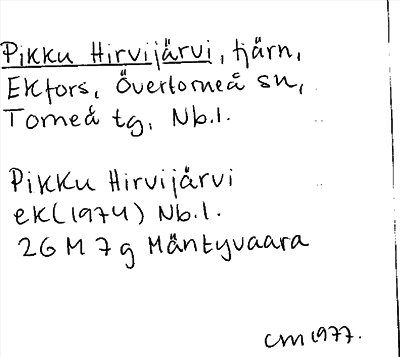 Pikku Hirvijärvi, tjärn,
Ekfors, Övertorneå sn,
Torneå tg, Nb.l.
Pikku Hirvijärvi
ek(1974) Nb.l.
26 M 7 g Mäntyvaara
CM 1977.